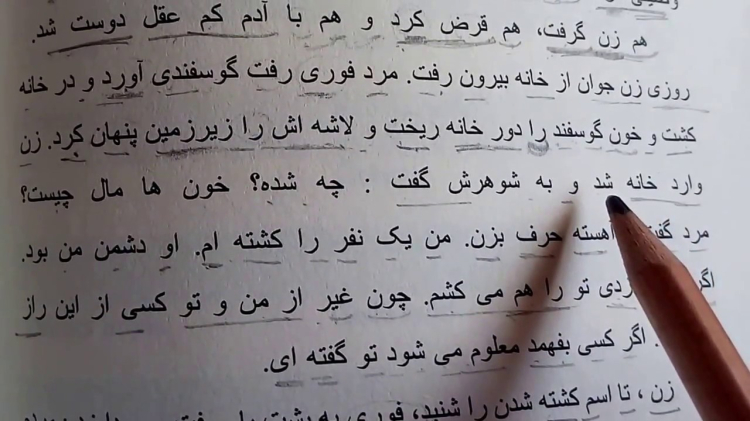 هم زن گرفت، هم قرض کرد و هم با آدم کم عقل دوست شد.
روزی زن جوان از خانه بیرون رفت. مرد فوری رفت گوسفندی آورد و در خانه
کشت و خون گوسفند را دور خانه ریخت و لاشه اش را زیرزمین پنهان کرد. زن
وارد خانه شد و به شوهرش گفت : چه شده؟ خون ها مال چیست؟
مرد آهسته حرف بزن. من یک نفر را کشته ام. او دشمن من بود.
تو را هم می کشم. چون غیر از من و تو کسی از این راز
. اگر کسی بفهمد معلوم می شود تو گفته ای.
زن ، تا اسم کشته شدن را شنید، فوری